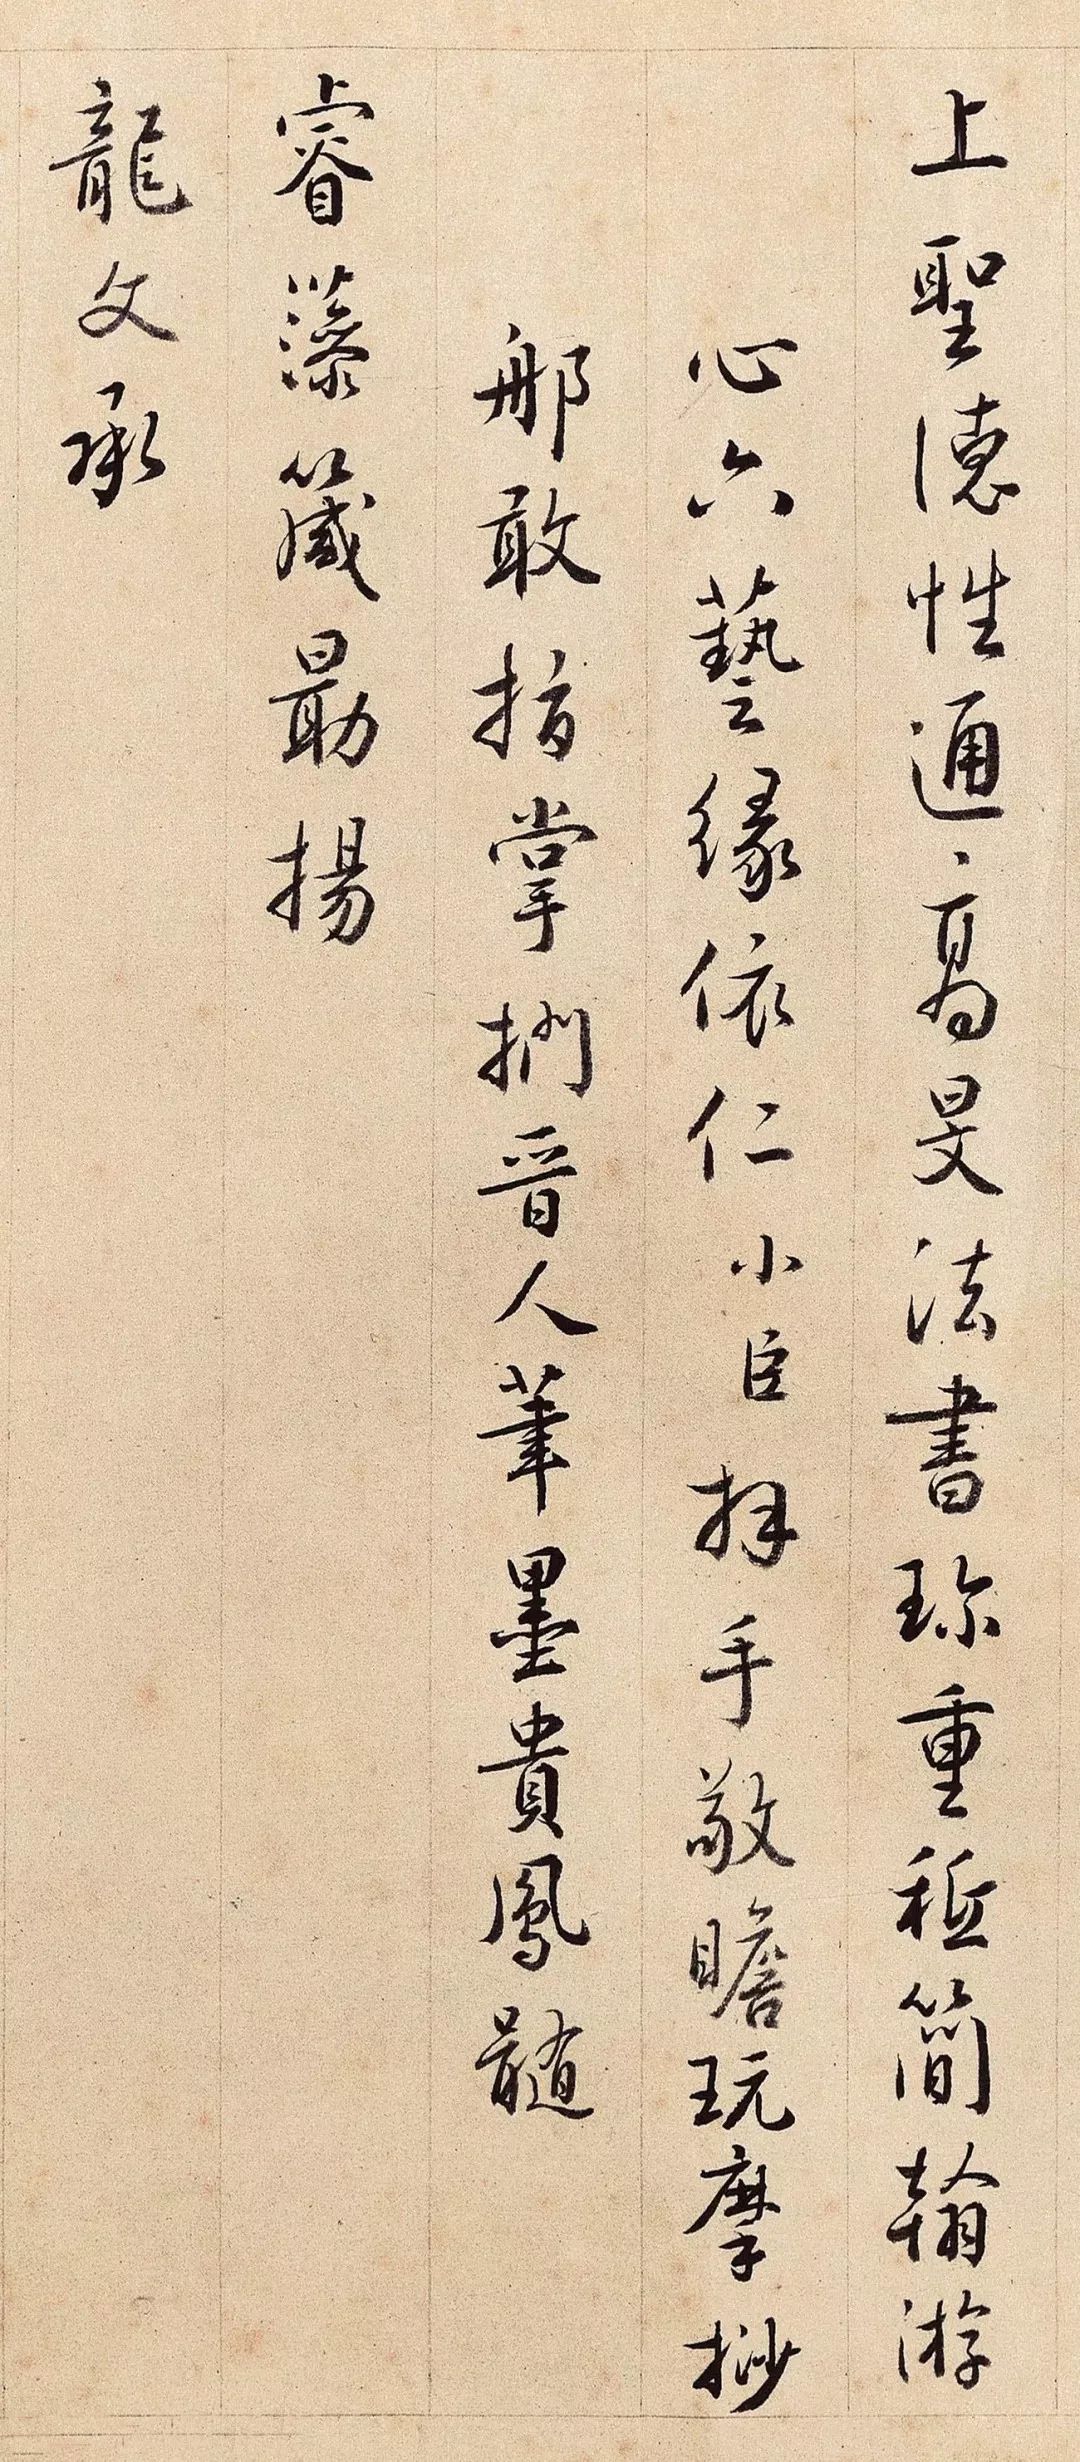 上聖德性通高旻法書珍重秪簡翰游
心六藝緣依仁小臣拜手敬瞻玩摩挱
那敢指掌捫晉人筆墨貴鳳髓
睿藻箴勗揚
龍文承